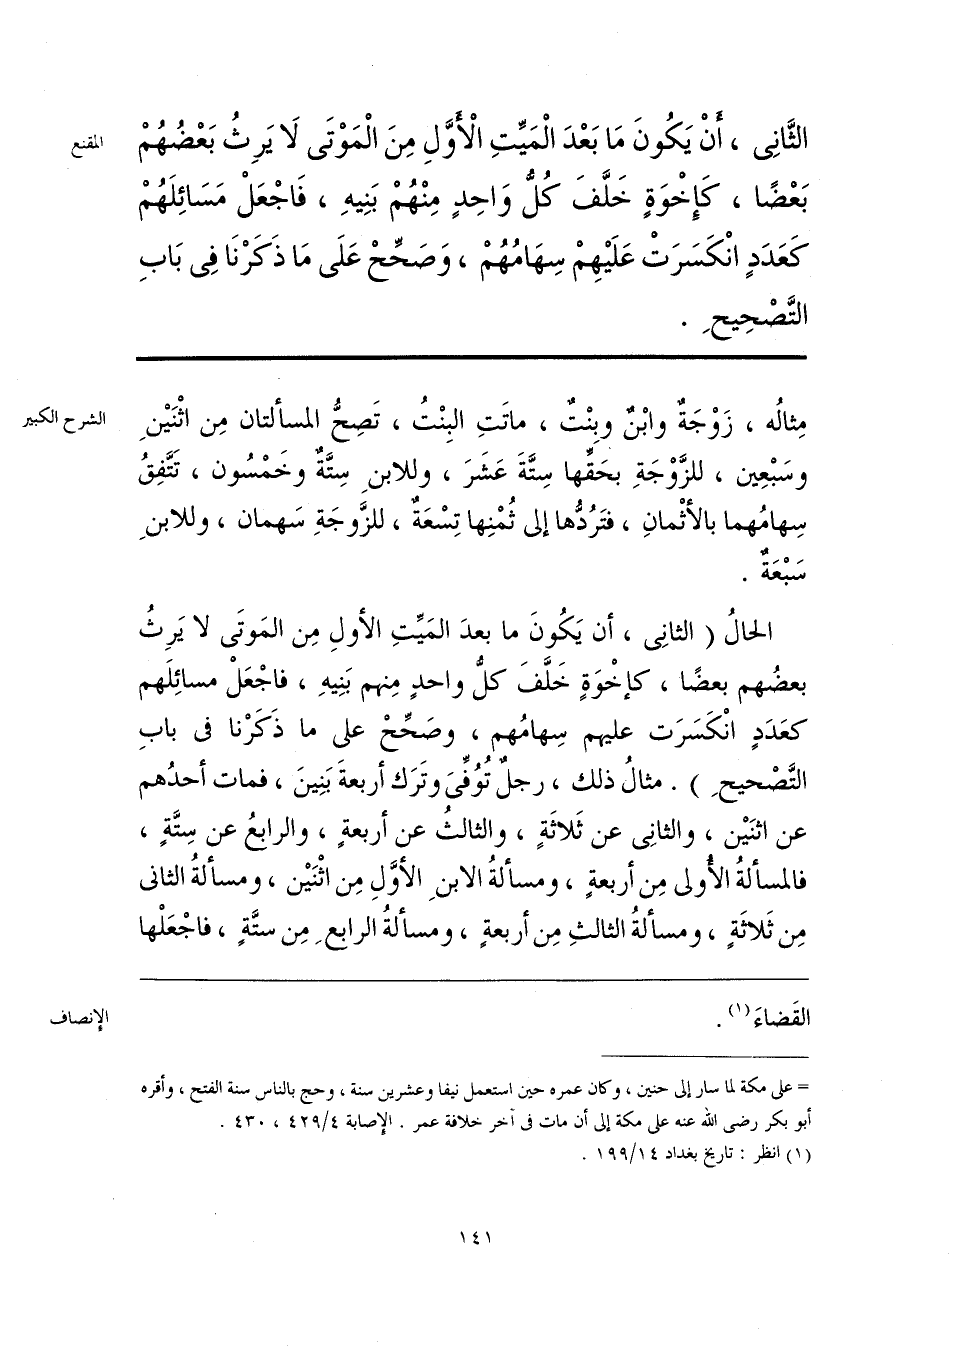 المقنع
الثَّانِى ، أَنْ يَكُونَ مَا بَعْدَ الْمَيِّتِ الْأَوَّلِ مِنَ الْمَوْتَى لَا يَرِثُ بَعْضُهُمْ
بَعْضًا ، كَإِخْوَةٍ خَلَّفَ كُلُّ وَاحِدٍ مِنْهُمْ بَنِيهِ ، فَاجْعَلْ مَسَائِلَهُمْ
كَعَدَدٍ انْكَسَرَتْ عَلَيْهِمْ سِهَامُهُمْ ، وَصَحِّحْ عَلَى مَا ذَكَرْنَا فِى بَابِ
التَّصْحِيحِ .
الشرح الكبير
مِثالُه ، زَوْجَةٌ وابْنٌ وبِنْتٌ ، ماتَتِ البِنْتُ ، تَصِحُّ المسألتان مِن اثْنَيْنِ
وسَبْعِين ، للزَّوْجَةِ بحَقِّها سِتَّةَ عَشَرَ ، وللابنِ سِتَّةٌ وخَمْسُون ، تَتَّفِقُ
سِهامُهما بالأثْمانِ ، فتَرُدُّها إلى ثُمْنِها تِسْعَةٌ ، للزَّوجَةِ سَهمان ، وللابنِ
سَبْعَةٌ .
الحالُ ( الثانِى ، أن يَكُونَ ما بعدَ المَيِّتِ الأولِ مِن المَوتَى لا يَرِثُ
بعضُهم بعضًا ، كإخْوَةٍ خَلَّفَ كلُّ واحدٍ مِنهم بَنِيهِ ، فاجْعَلْ مسائِلَهم
كعَدَدٍ انْكَسَرَت عليهم سِهامُهم ، وصَحِّحْ على ما ذَكَرْنا فى بابِ
التَّصْحيحِ ) . مثالُ ذلك ، رجلٌ تُوُفِّىَ وتَرَك أربعةَ بَنِينَ ، فمات أحدُهم
عن اثنَيْن ، والثانِى عن ثَلاثَةٍ ، والثالثُ عن أربعةٍ ، والرابعُ عن سِتَّةٍ ،
فالمسألةُ الأُولى مِن أربعةٍ ، ومسألةُ الابنِ الأوَّلِ مِن اثْنَيْن ، ومسألةُ الثانى
مِن ثَلاثَةٍ ، ومسألةُ الثالثِ مِن أربعةٍ ، ومسألةُ الرابعِ مِن ستَّةٍ ، فاجْعَلْها
الإنصاف
القَضاءَ(١) .
= على مكة لما سار إلى حنين ، وكان عمره حين استعمل نيفا وعشرين سنة ، وحج بالناس سنة الفتح ، وأقره
أبو بكر رضى الله عنه على مكة إلى أن مات فى آخر خلافة عمر . الإصابة ٤٢٩/٤ ، ٤٣٠ .
(١) انظر : تاريخ بغداد ١٩٩/١٤ .
١٤١